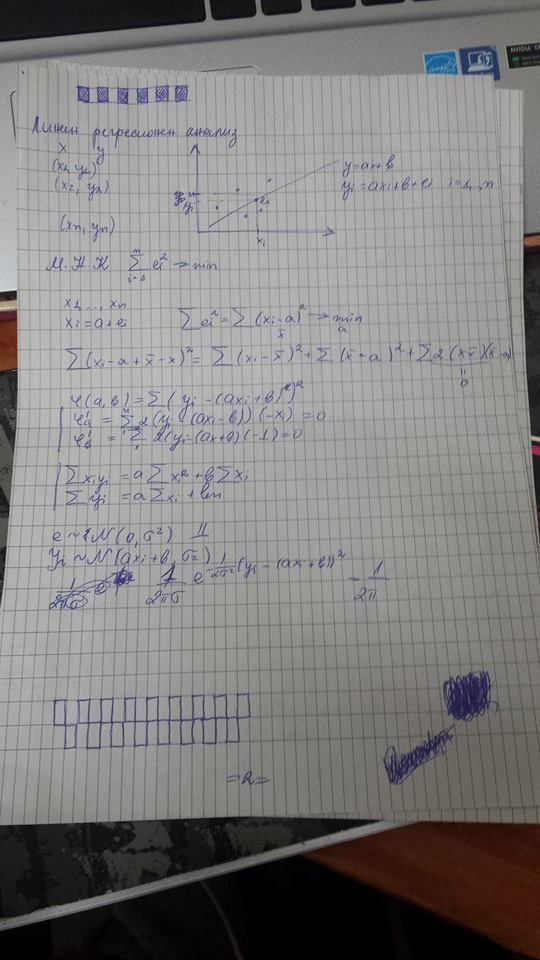 NVIDIA
Линеен регресионен анализ
x y
(x1, y1)
(x2, y2)
(xn, yn)
yi
ei
xi
y=ax+b
yi=axi+b+ei i=1,..,n
М.Н.К n∑i=1 ei² → min
x1,...,xn
xi=a+ei ∑ei²=∑(xi-a)² → min a
x̄
∑(xi-a+x̄-x̄)²=∑(xi-x̄)²+∑(x̄-a)²+∑2(xx̄)(x̄-a)
0
φ(a,b)=∑(yi-(axi+b))²
φ'a=∑2(yi-(axi-b))(-xi)=0
φ'b=∑2(yi-(ax+b)(-1)=0
∑xiyi=a∑xi²+b∑xi
∑yi=a∑xi+bn
e~N(0,σ²) II
yi~N(axi+b,σ²)
1/2πσ 1/2πσ e 1/2σ²(yi-(axi+b))² - 1/2π
=2=